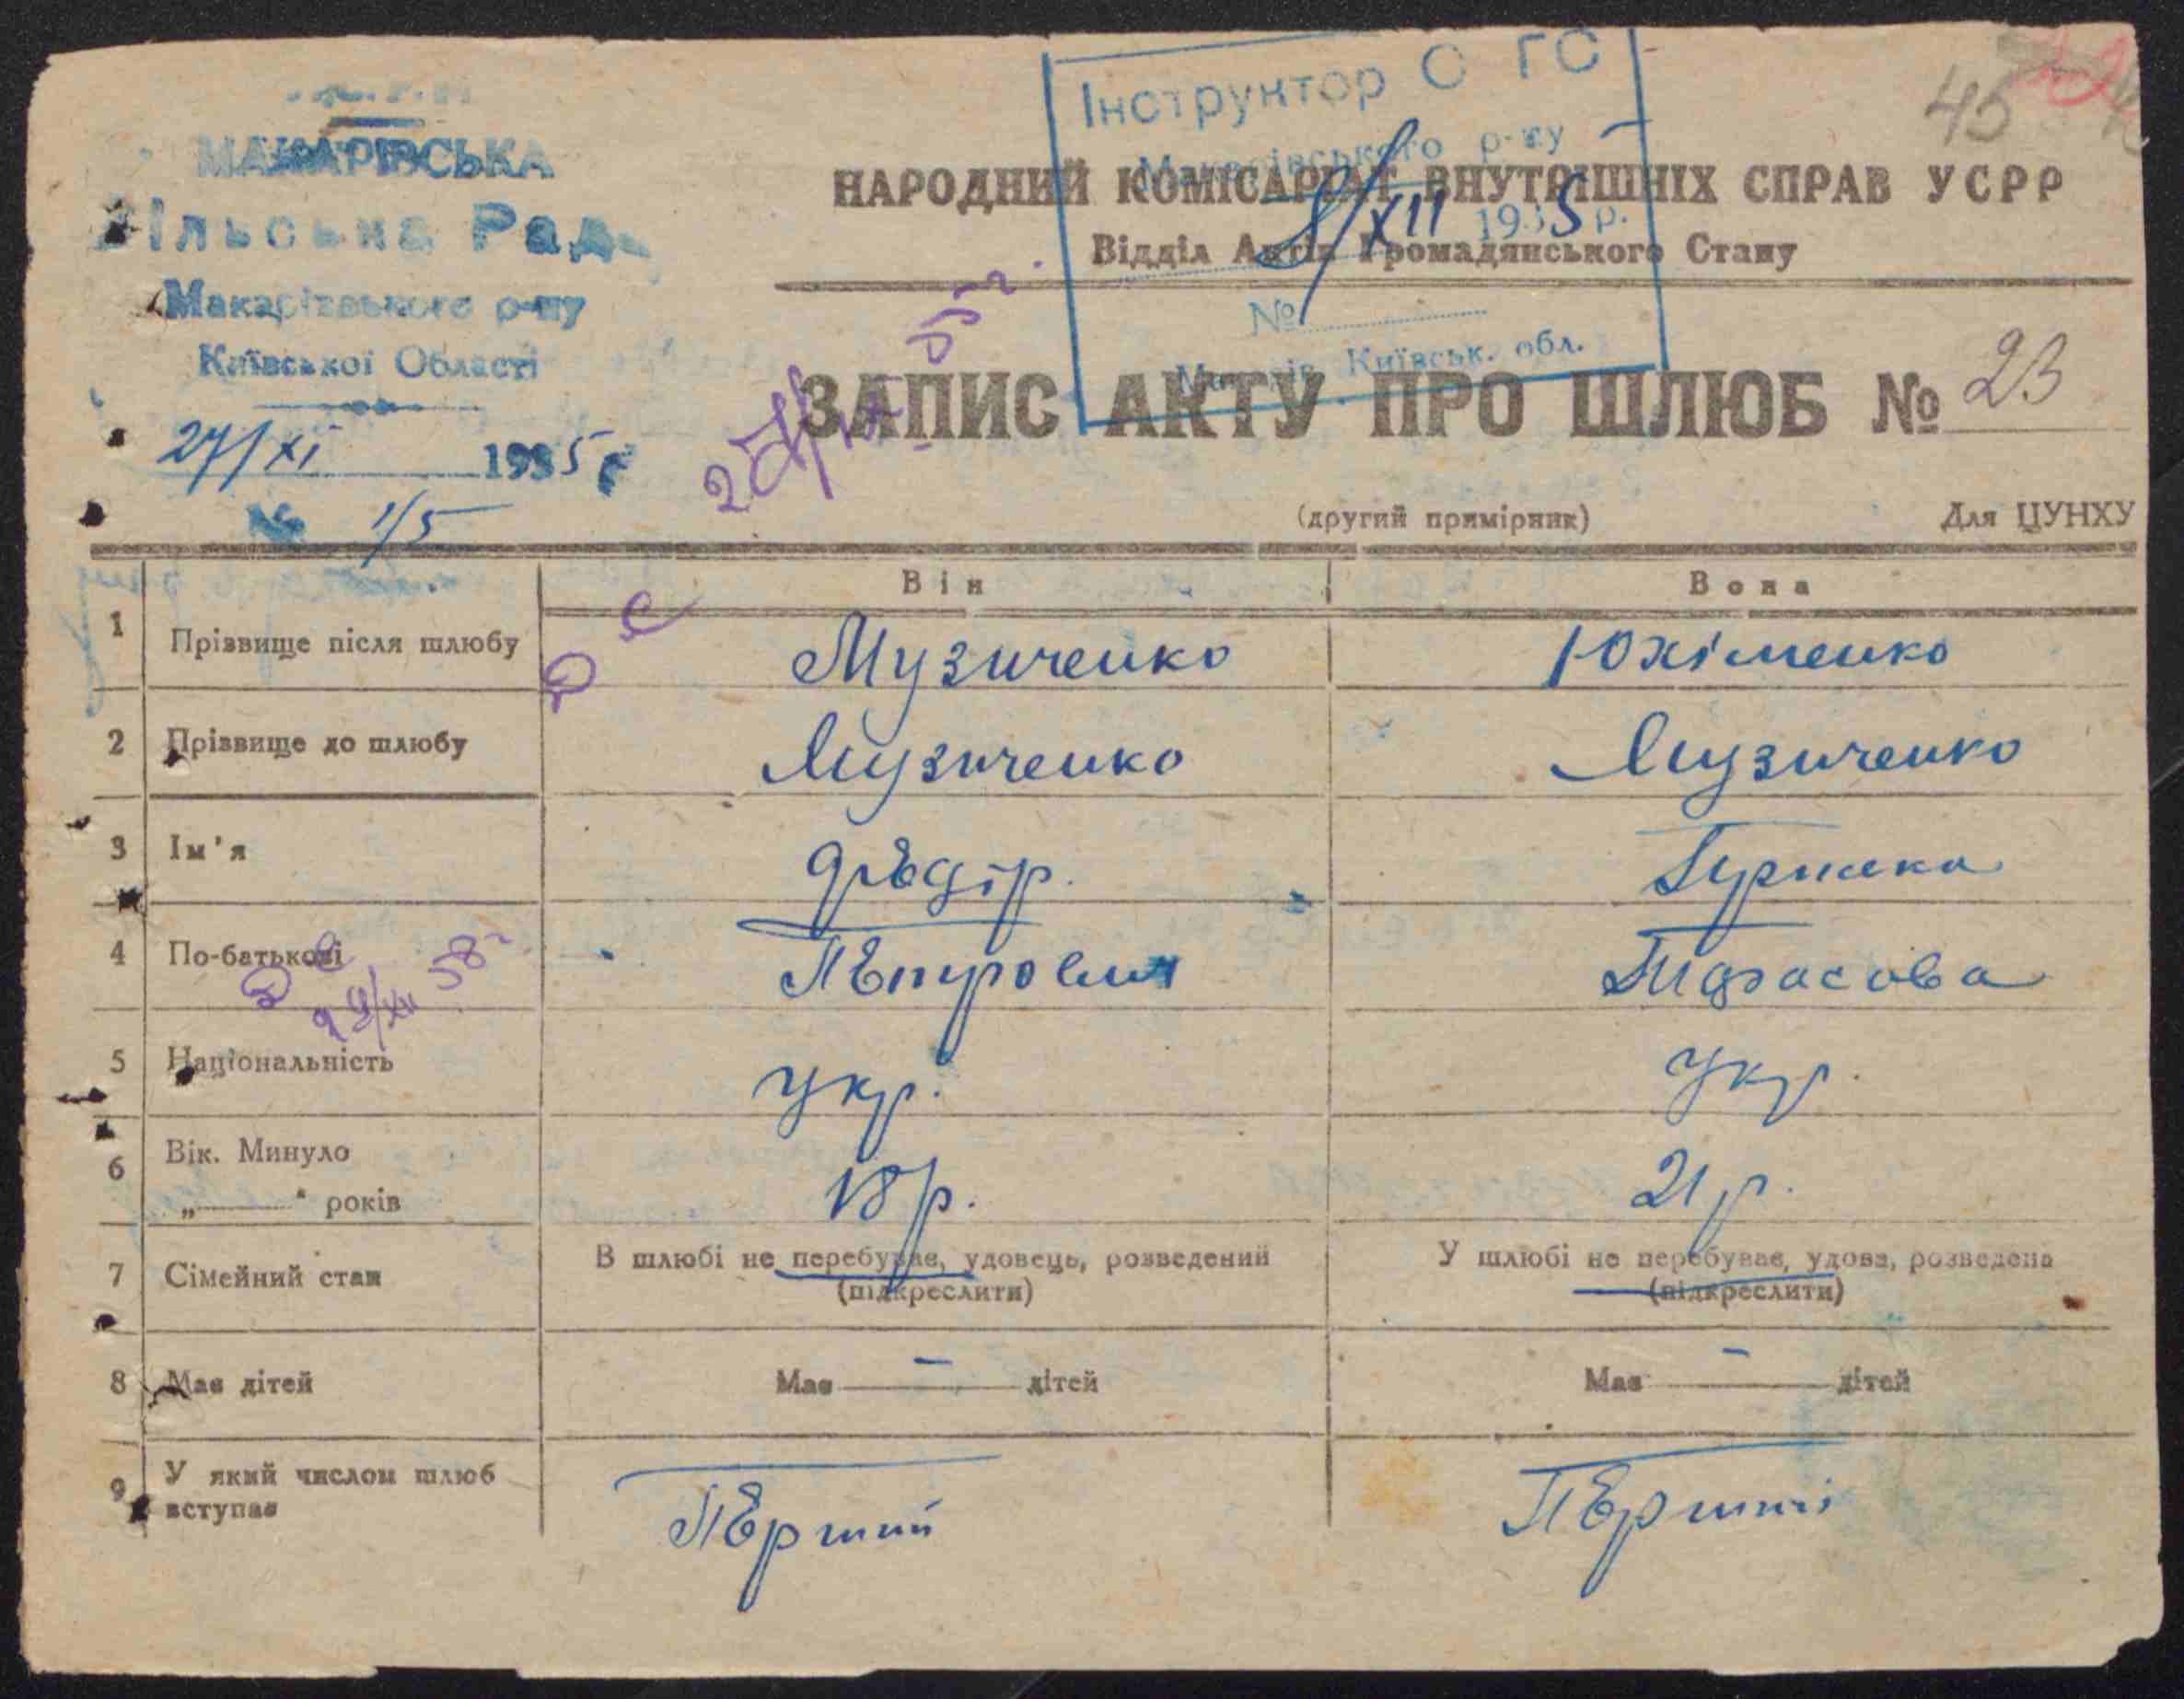 МАКАРІВСЬКА
Сільська Рада
Макарівського р-ну
Київської Області
27/XI 1935 р
№ 1/5
Інструктор О ГС
Макарівського р-ну
8/XII 1935 р.
№
Макарів Київськ. обл.
45
НАРОДНИЙ КОМІСАРІАТ ВНУТРІШНІХ СПРАВ УСРР
Відділ Актів Громадянського Стану
ЗАПИС АКТУ ПРО ШЛЮБ № 23
(другий примірник) Для ЦУНХУ
Він Вона
1 Прізвище після шлюбу Музиченко Юхіменко
2 Прізвище до шлюбу Музиченко Музиченко
3 Ім'я Федір
4 По-батькові Петрович Тарасова
5 Національність укр. укр.
6 Вік. Минуло
„ “ років 18 р. 21 р.
7 Сімейний стан В шлюбі не перебуває, удовець, розведений У шлюбі не перебуває, удова, розведена
(підкреслити) (підкреслити)
8 Має дітей Має — дітей Має — дітей
9 У який числом шлюб
вступає Перший Перший